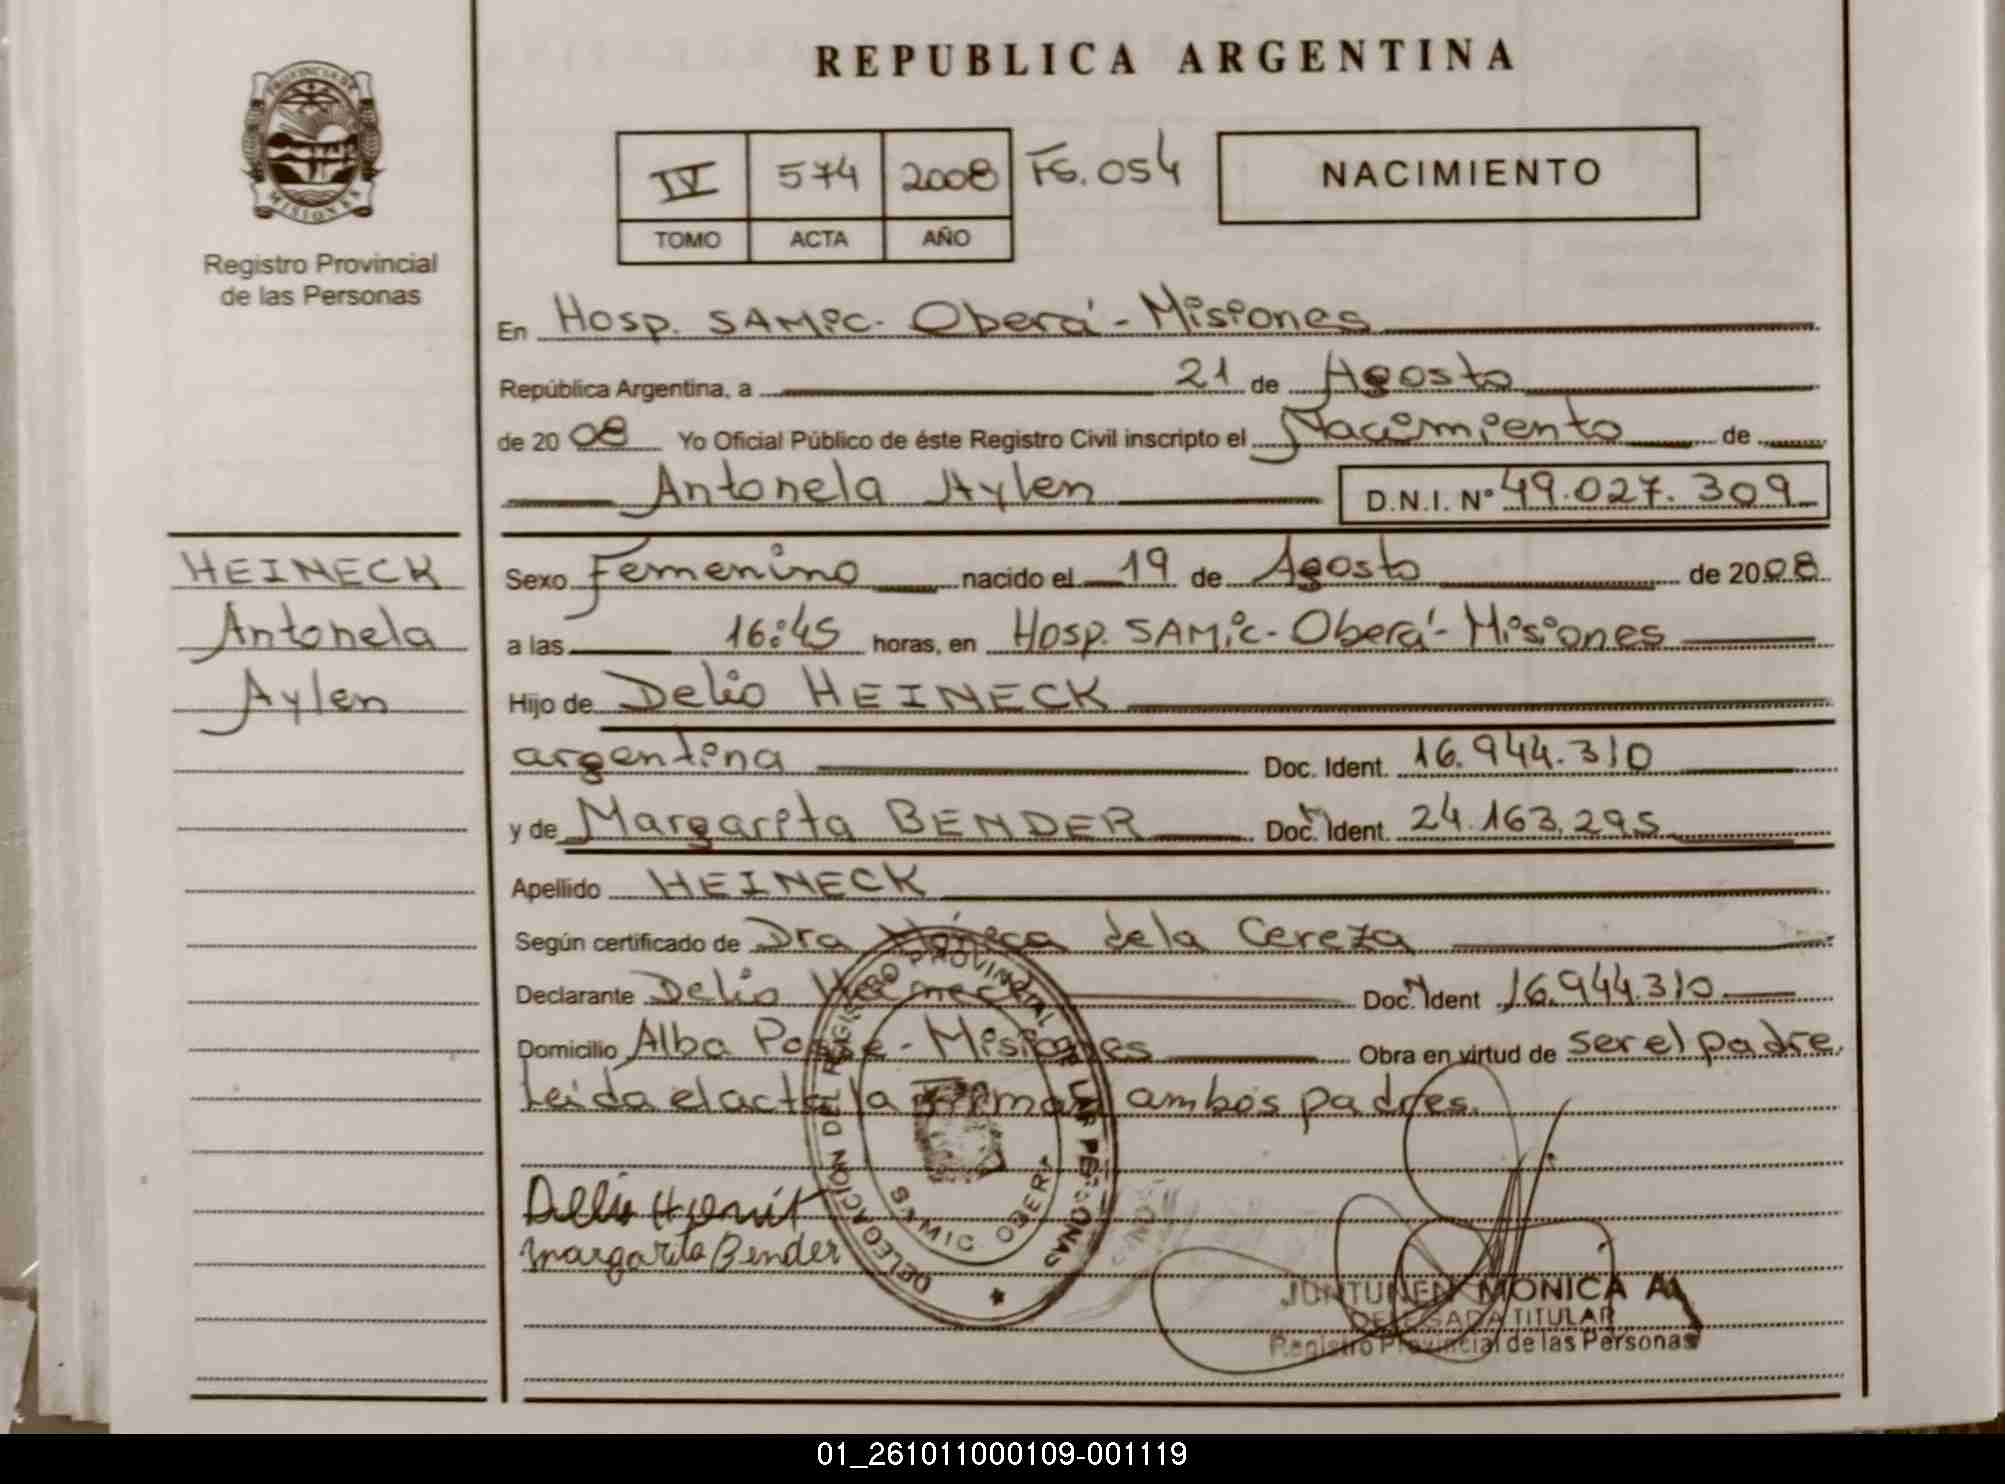 REPUBLICA ARGENTINA
PROVINCIA DE
MISIONES
Registro Provincial
de las Personas
IV 574 2008 Fs. 054
TOMO ACTA AÑO
NACIMIENTO
En Hosp. SAMic - Oberá - Misiones
República Argentina, a 21 de Agosto
de 2008 Yo Oficial Público de éste Registro Civil inscripto el Nacimiento de
Antonela Aylen D.N.I. Nº 49.027.309
HEINECK
Antonela
Aylen
Sexo Femenino nacido el 19 de Agosto de 2008
a las 16:45 horas, en Hosp. SAMic - Oberá - Misiones
Hijo de Delio HEINECK
argentina Doc. Ident. 16.944.310
y de Margarita BENDER Doc. Ident. 24.163.295
Apellido HEINECK
Según certificado de Dra Mónica de la Cereza
Declarante Delio Heineck Doc. Ident 16.944.310
Domicilio Alba Posse - Misiones Obra en virtud de ser el padre.
Leida el acta la Firman ambos padres.
DELEGACIÓN DEL REGISTRO PROVINCIAL DE LAS PERSONAS
OBERA
Margarita Bender
JUNTUNEN MONICA A
DELEGADA TITULAR
Registro Provincial de las Personas
01_261011000109-001119